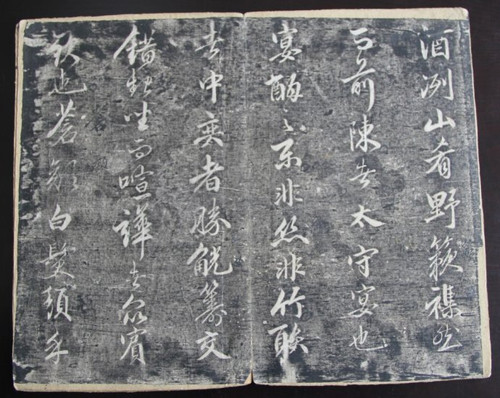 酒洌山肴野蔌襍然
而前陳者太守宴也
宴酣之樂非絲非竹射
者中奕者勝觥籌交
錯起坐而喧譁者眾賓
歡也蒼顏白髮頹乎